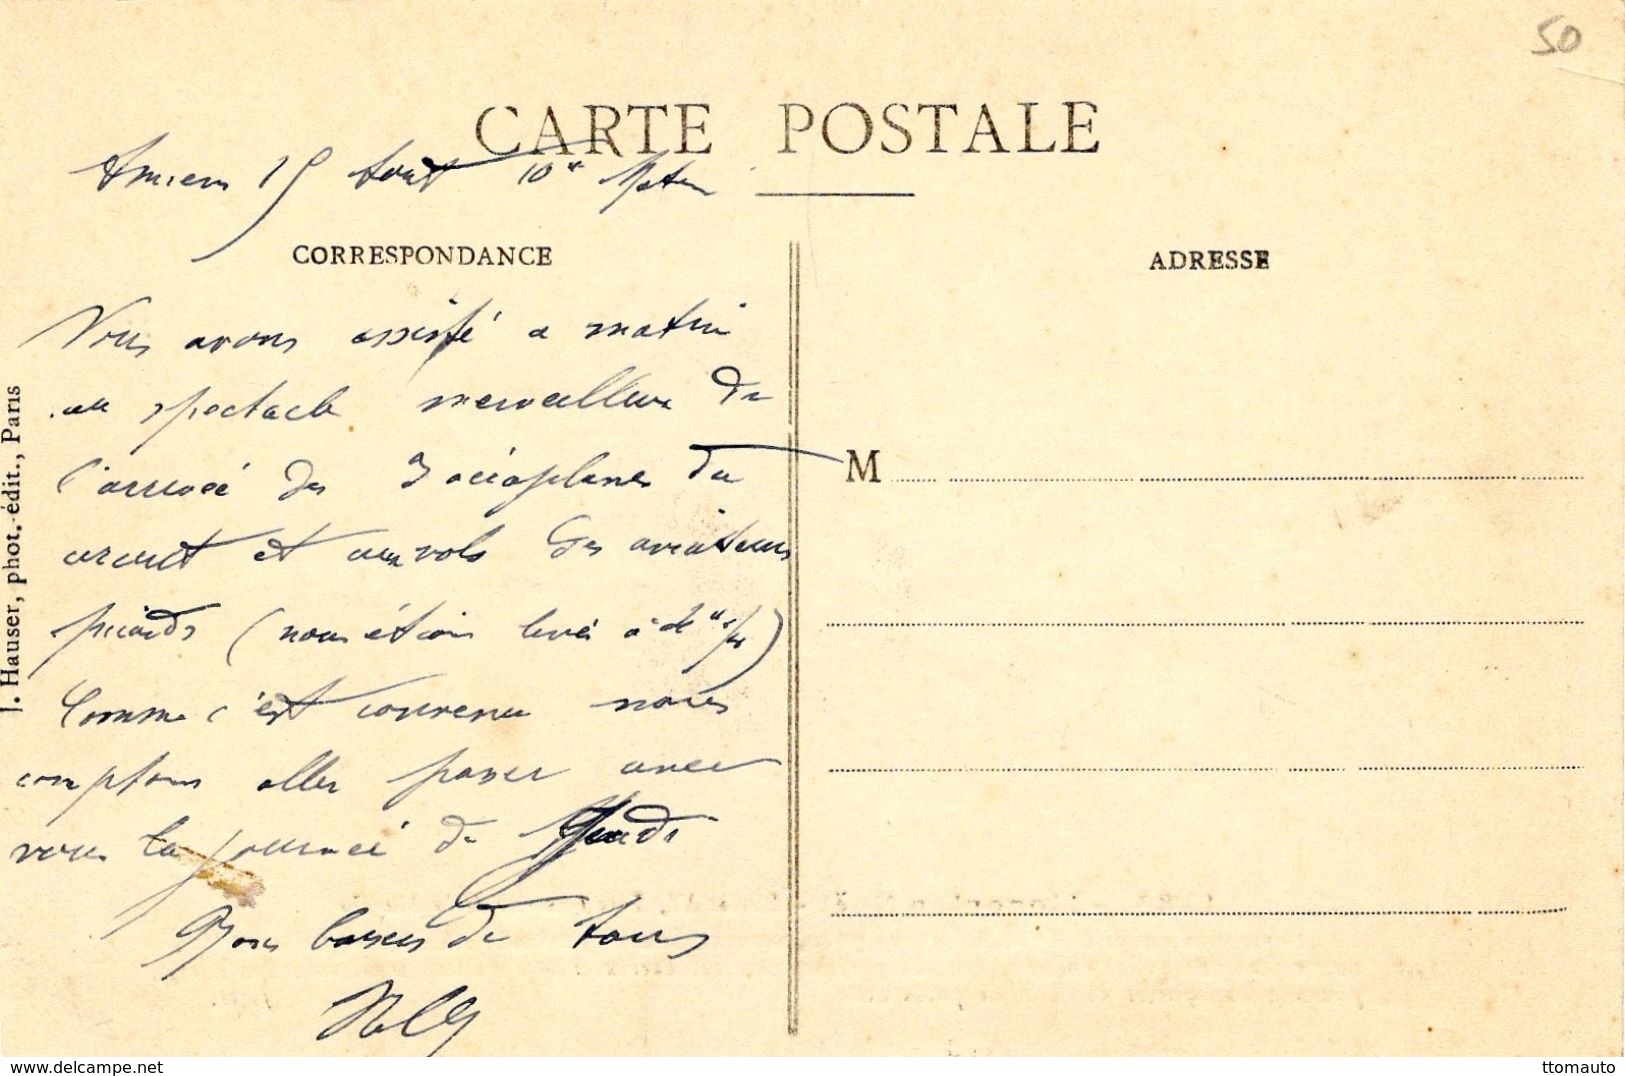 50
CARTE POSTALE
Amiens 15 Août 10h Matin
CORRESPONDANCE
ADRESSE
Nous avons assisté ce matin
au spectacle merveilleux de
l'arrivée des 3 aéroplanes du
M
circuit et aux vols des aviateurs
picards (nous étions levés à
Comme c'est convenu nous
comptons aller passer avec
vous la journée de
Bons baisers de tous
J. Hauser, phot.-édit., Paris
www.delcampe.net
ttomauto